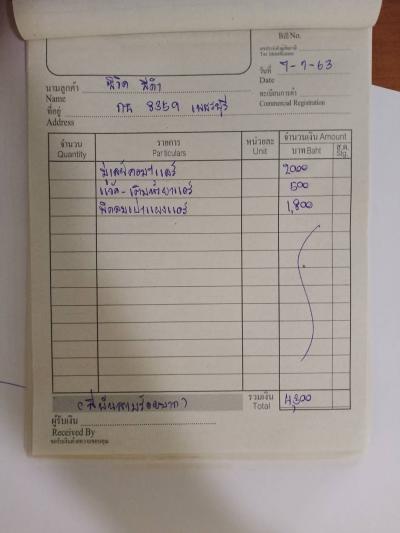 Bill No.
เลขประจำตัวผู้เสียภาษี
Tax Identification
วันที่ 7-7-63
Date
นามลูกค้า
Name
ทะเบียนการค้า
Commercial Registration
ที่อยู่ กธ 8359 เพชรบุรี
Address
จำนวน รายการ หน่วยละ จำนวนเงิน Amount
Quantity Particulars Unit บาท Baht ส.ต. Stg.
มู่เลย์คอมฯแอร์ 2000
แวค-เติมน้ำยาแอร์ 500
1,800
(สี่พันสามร้อยบาท) รวมเงิน 4,300
Total
ผู้รับเงิน
Received By
ขอรับเงินด้วยความขอบคุณ